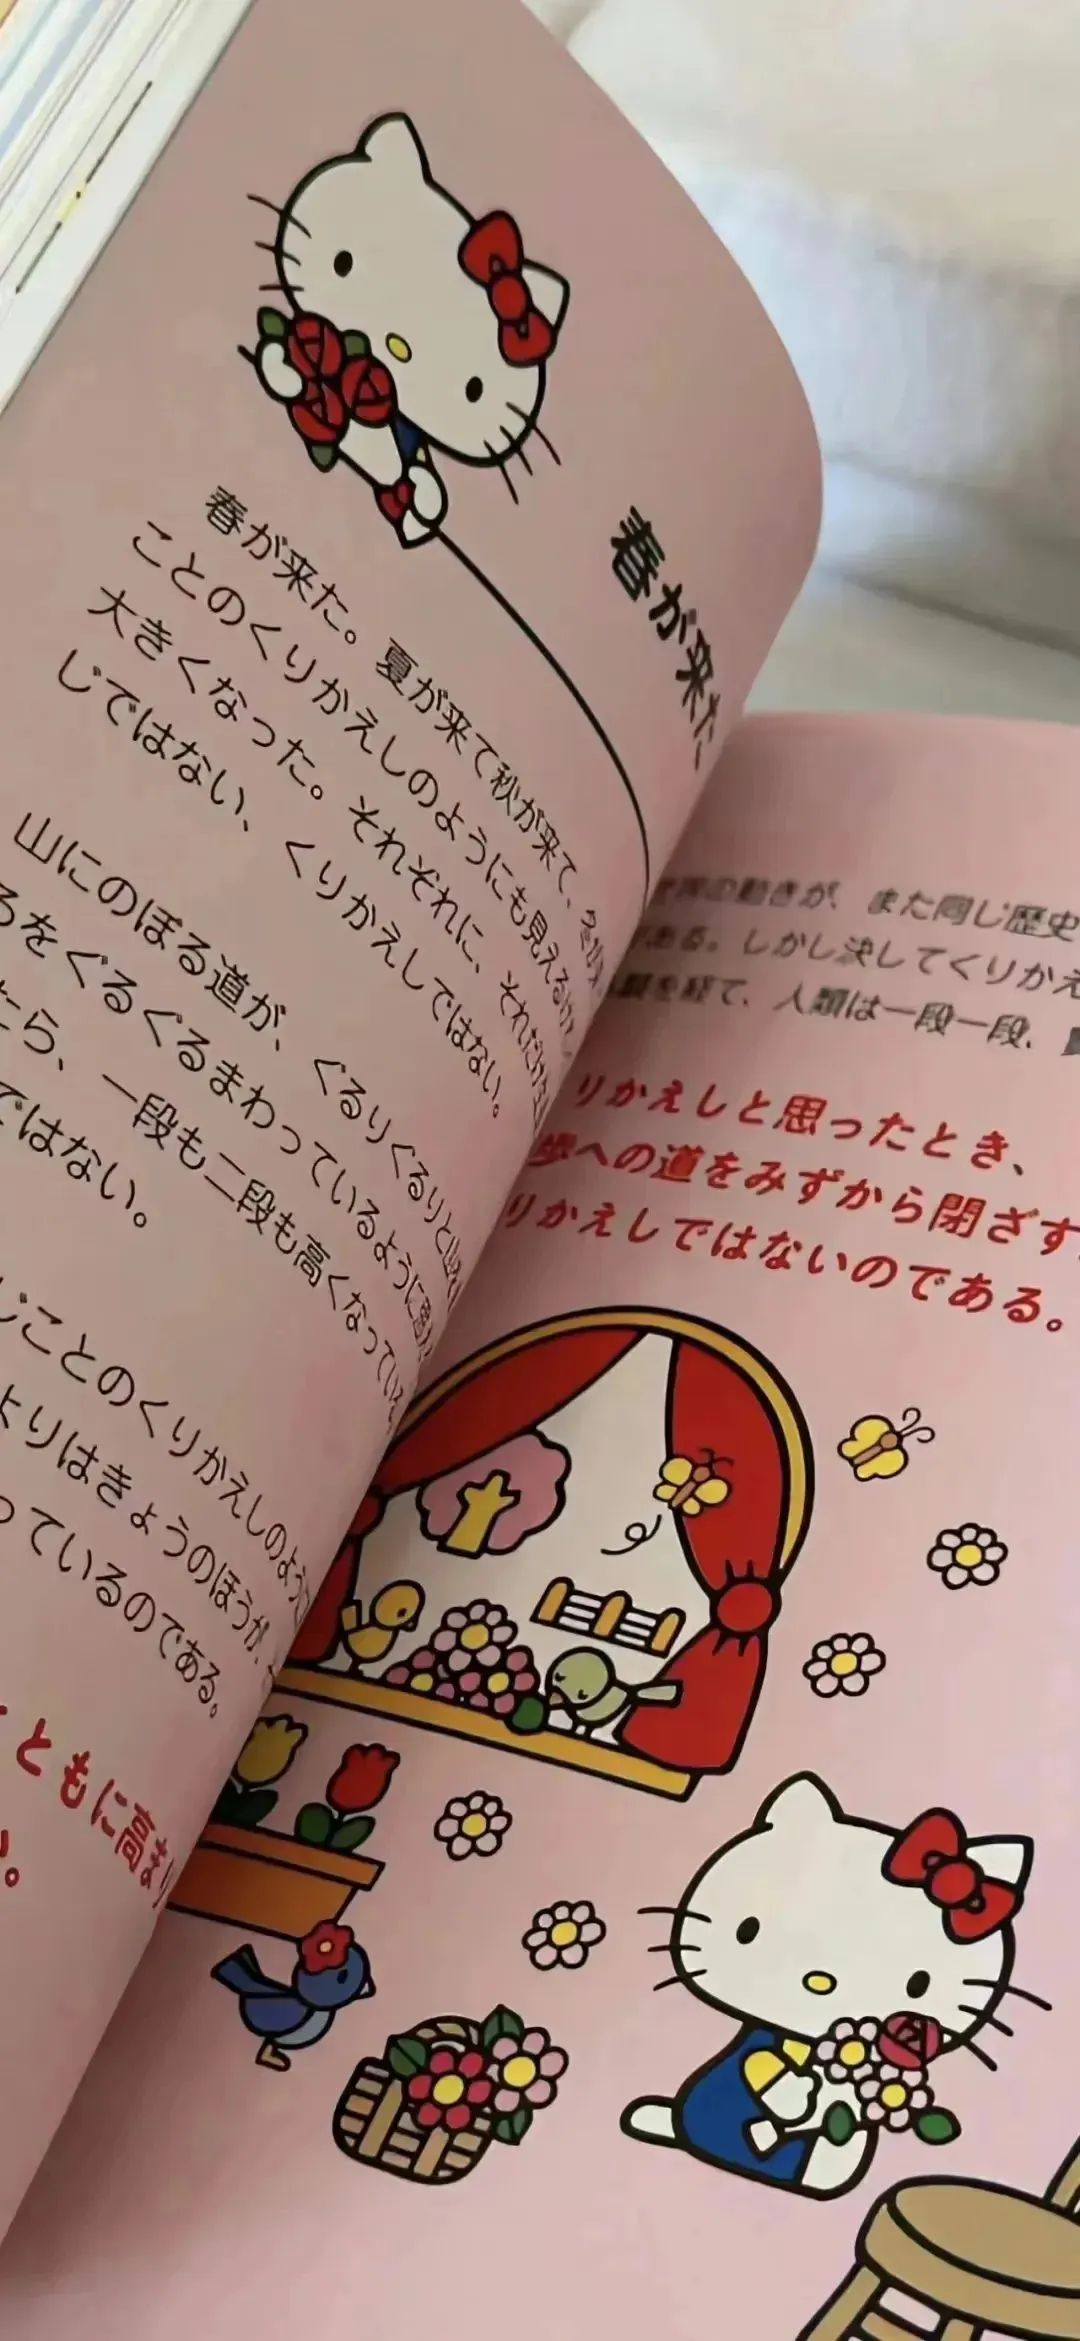 春が来た
春が来た。夏が来て秋が来て、
ことのくりかえしのようにも見える
大きくなった。それぞれに、それだけ
じではない、くりかえしではない。
山にのぼる道が、ぐるりぐるりと
ろをぐるぐるまわっているように
たら、一段も二段も高くなってい
ではない。
じことのくりかえしのように
よりはきょうのほうが、
っているのである。
ともに高ま
い。
の動きが、また同じ歴史
がある。しかし決してくりかえ
を経て、人類は一段一段、
りかえしと思ったとき、
歩への道をみずから閉ざす。
りかえしではないのである。